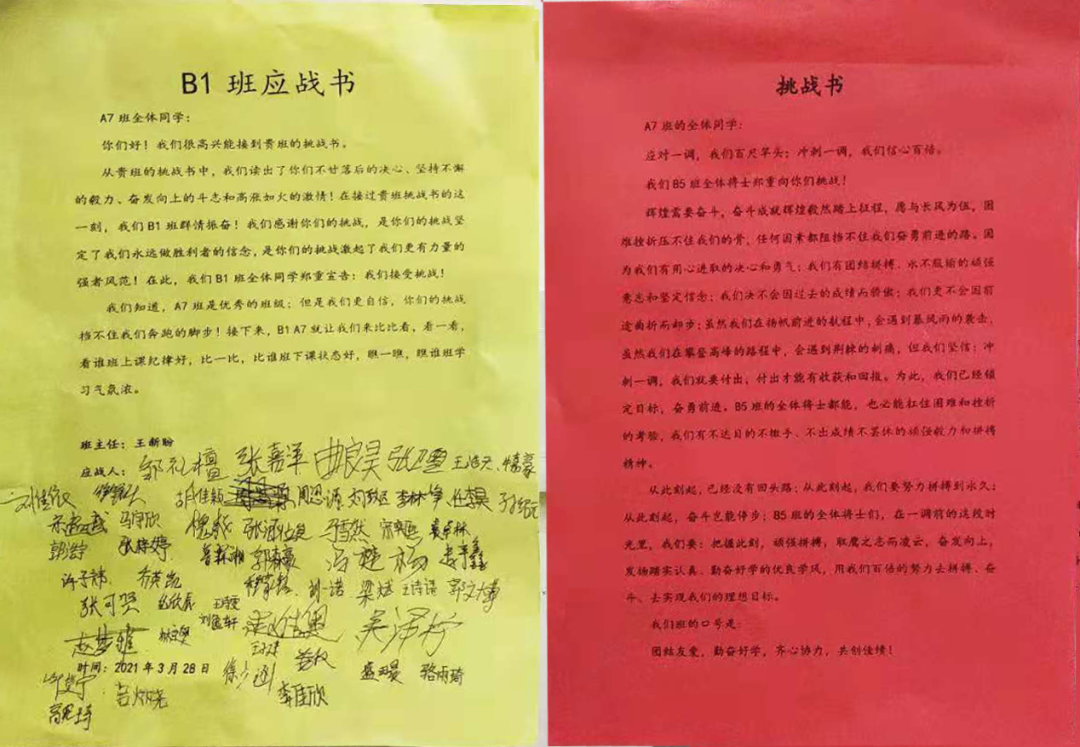 B1 班应战书
A7 班全体同学:
你们好!我们很高兴能接到贵班的挑战书。
从贵班的挑战书中,我们读出了你们不甘落后的决心、坚持不懈
的毅力、奋发向上的斗志和高涨如火的激情!在接过贵班挑战书的这
一刻,我们 B1 班群情振奋!我们感谢你们的挑战,是你们的挑战坚
定了我们永远做胜利者的信念,是你们的挑战激起了我们更有力量的
强者风范!在此,我们 B1 班全体同学郑重宣告:我们接受挑战!
我们知道,A7 班是优秀的班级;但是我们更自信,你们的挑战
挡不住我们奔跑的脚步!接下来,B1 A7 就让我们来比比看,看一看,
看谁班上课纪律好,比一比,比谁班下课状态好,瞧一瞧,瞧谁班学
习气氛浓。
班主任:王新盼
应战人:邹礼檀 张嘉泽 曲良昊
胡佳颖 周恩源 李林峥 任昊
马宇欣 马雪然
张婷婷 冯楚杨
许子祎 刘一诺 梁斌 王诗语 郭文博
张可贺
吴泽柠
时间:2021 年 3 月 28 日 骆雨琦
李佳欣
挑战书
A7 班的全体同学:
应对一调,我们百尺竿头;冲刺一调,我们信心百倍。
我们 B5 班全体将士郑重向你们挑战!
辉煌需要奋斗,奋斗成就辉煌毅然踏上征程,愿与长风为伍,困
难挫折压不住我们的骨,任何因素都阻挡不住我们奋勇前进的路。因
为我们有用心进取的决心和勇气;我们有团结拼搏、永不服输的顽强
意志和坚定信念;我们决不会因过去的成绩而骄傲;我们更不会因前
途曲折而却步;虽然我们在扬帆前进的航程中,会遇到暴风雨的袭击,
虽然我们在攀登高峰的路程中,会遇到荆棘的刺痛,但我们坚信:冲
刺一调,我们就要付出,付出才能有收获和回报。为此,我们已经锁
定目标,奋勇前进。B5 班的全体将士都能,也必能扛住困难和挫折
的考验,我们有不达目的不撤手、不出成绩不罢休的顽强毅力和拼搏
精神。
从此刻起,已经没有回头路;从此刻起,我们要努力拼搏到永久;
从此刻起,奋斗岂能停步;B5 班的全体将士们,在一调前的这段时
光里,我们要:把握此刻,顽强拼搏,取鹰之志而凌云,奋发向上,
发扬踏实认真、勤奋好学的优良学风,用我们百倍的努力去拼搏、奋
斗、去实现我们的理想目标。
我们班的口号是:
团结友爱,勤奋好学,齐心协力,共创佳绩!